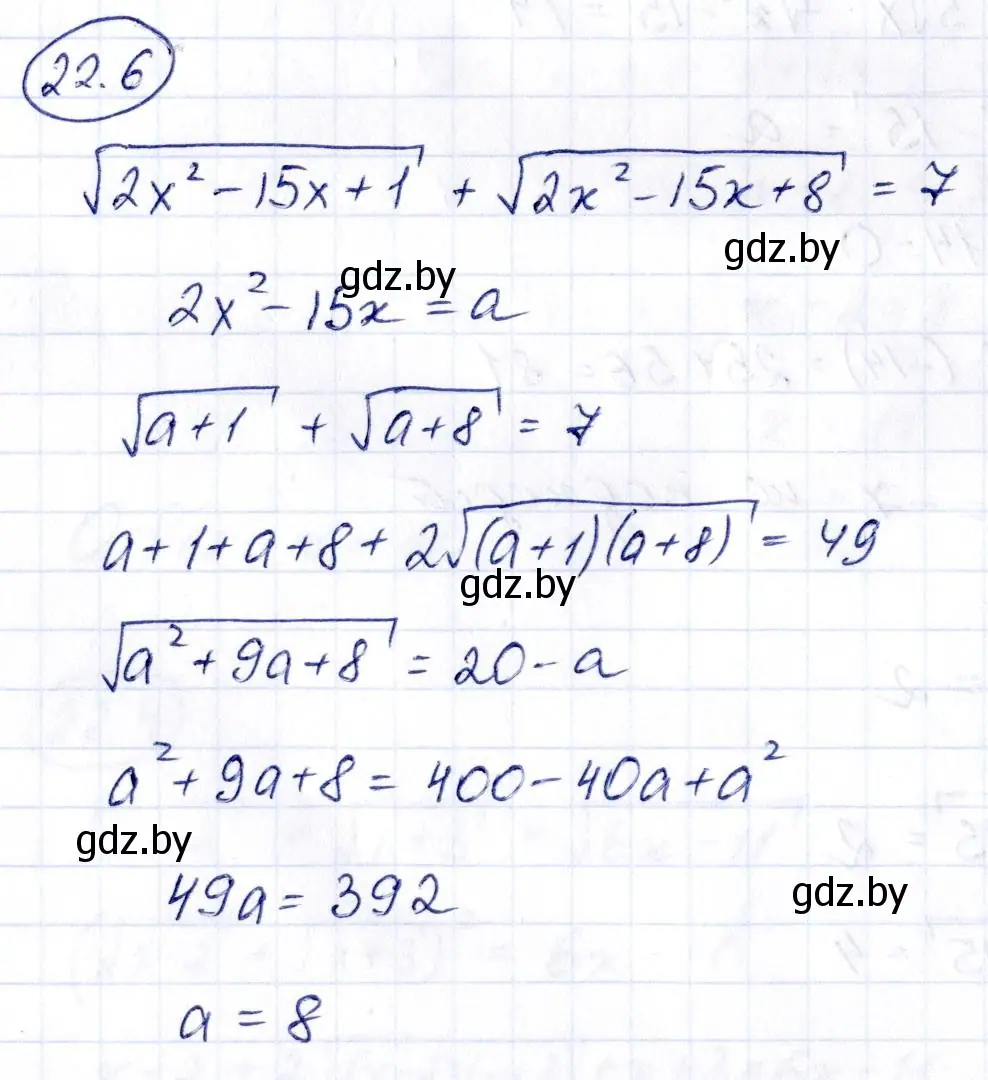 22.6
√(2x² - 15x + 1) + √(2x² - 15x + 8) = 7
gdz.by
gdz.by
2x² - 15x = a
√(a+1) + √(a+8) = 7
a + 1 + a + 8 + 2√((a+1)(a+8)) = 49
gdz.by
√(a² + 9a + 8) = 20 - a
a² + 9a + 8 = 400 - 40a + a²
gdz.by
49a = 392
gdz.by
a = 8